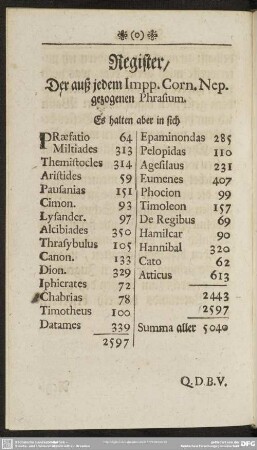 (o)
Register/
Der auß jedem Impp. Corn. Nep.
gezogenen Phrasium.
Es halten aber in sich
PRæfatio 64
Miltiades 313
Themistocles 314
Aristides 59
Pausanias 151
Cimon. 93
Lysander. 97
Alcibiades 350
Thrasybulus 105
Canon. 133
Dion. 329
Iphicrates 72
Chabrias 78
Timotheus 100
Datames 339
2597
Epaminondas 285
Pelopidas 110
Agesilaus 231
Eumenes 407
Phocion 99
Timoleon 157
De Regibus 69
Hamilcar 90
Hannibal 320
Cato 62
Atticus 613
2443
2597
Summa aller 5040
Q.D.B.V.
DFG